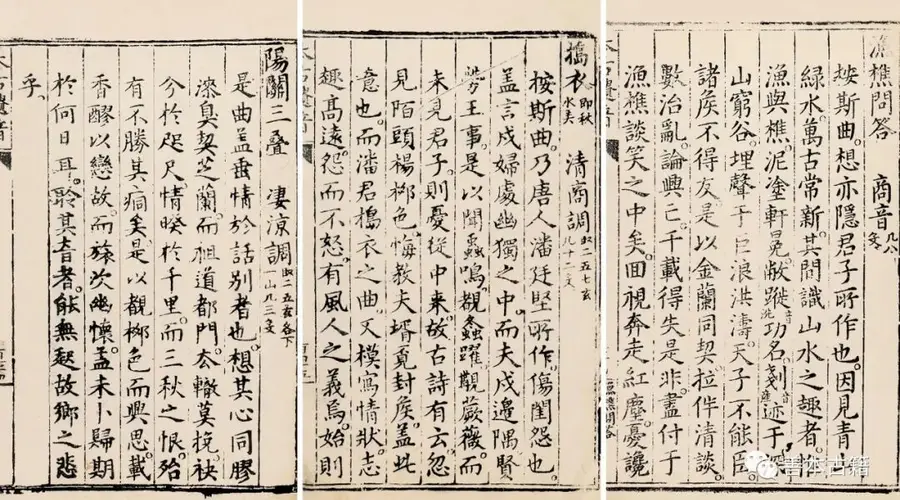 漁樵問答 商音
按斯曲。想亦隱君子所作也。因見青山
綠水。萬古常新。其間識山水之趣者。惟
漁與樵。泥塗軒冕。敝蹝功名。剗迹于
山窮谷。埋聲于巨浪洪濤。天子不能臣
諸矦不得友。是以金蘭同契。拉伴清談
數治亂。論興亡。千載得失是非。盡付于
漁樵談笑之中矣。回視奔走紅塵。憂讒
漁樵問答
擣衣 即秋水美 清商調
按斯曲。乃唐人潘廷堅所作。傷閨怨也
蓋言戍婦處幽獨之中。而夫戍邊隅。賢
勞王事。是以聞蟲鳴。覩螽躍。觀蕨薇。而
未見君子。則憂從中來。故古詩有云。忽
見陌頭楊柳色。悔教夫壻覓封矦。蓋此
意也。而潘君擣衣之曲。又模寫情狀。志
趣高遠。怨而不怒。有風人之義焉。始則
陽關三疊 淒涼調
是曲蓋垂情於話別者也。想其心同膠
漆。臭契芝蘭。而祖道都門。衣轍莫挽。袂
分於咫尺。情暌於千里。而三秋之恨。殆
有不勝其痌矣。是以觀柳色而興思。載
香醪以戀故。而旅次幽懷。孟未卜歸期
於何日耳。聆其音者。能無起故鄉之悲
乎。
善本古籍